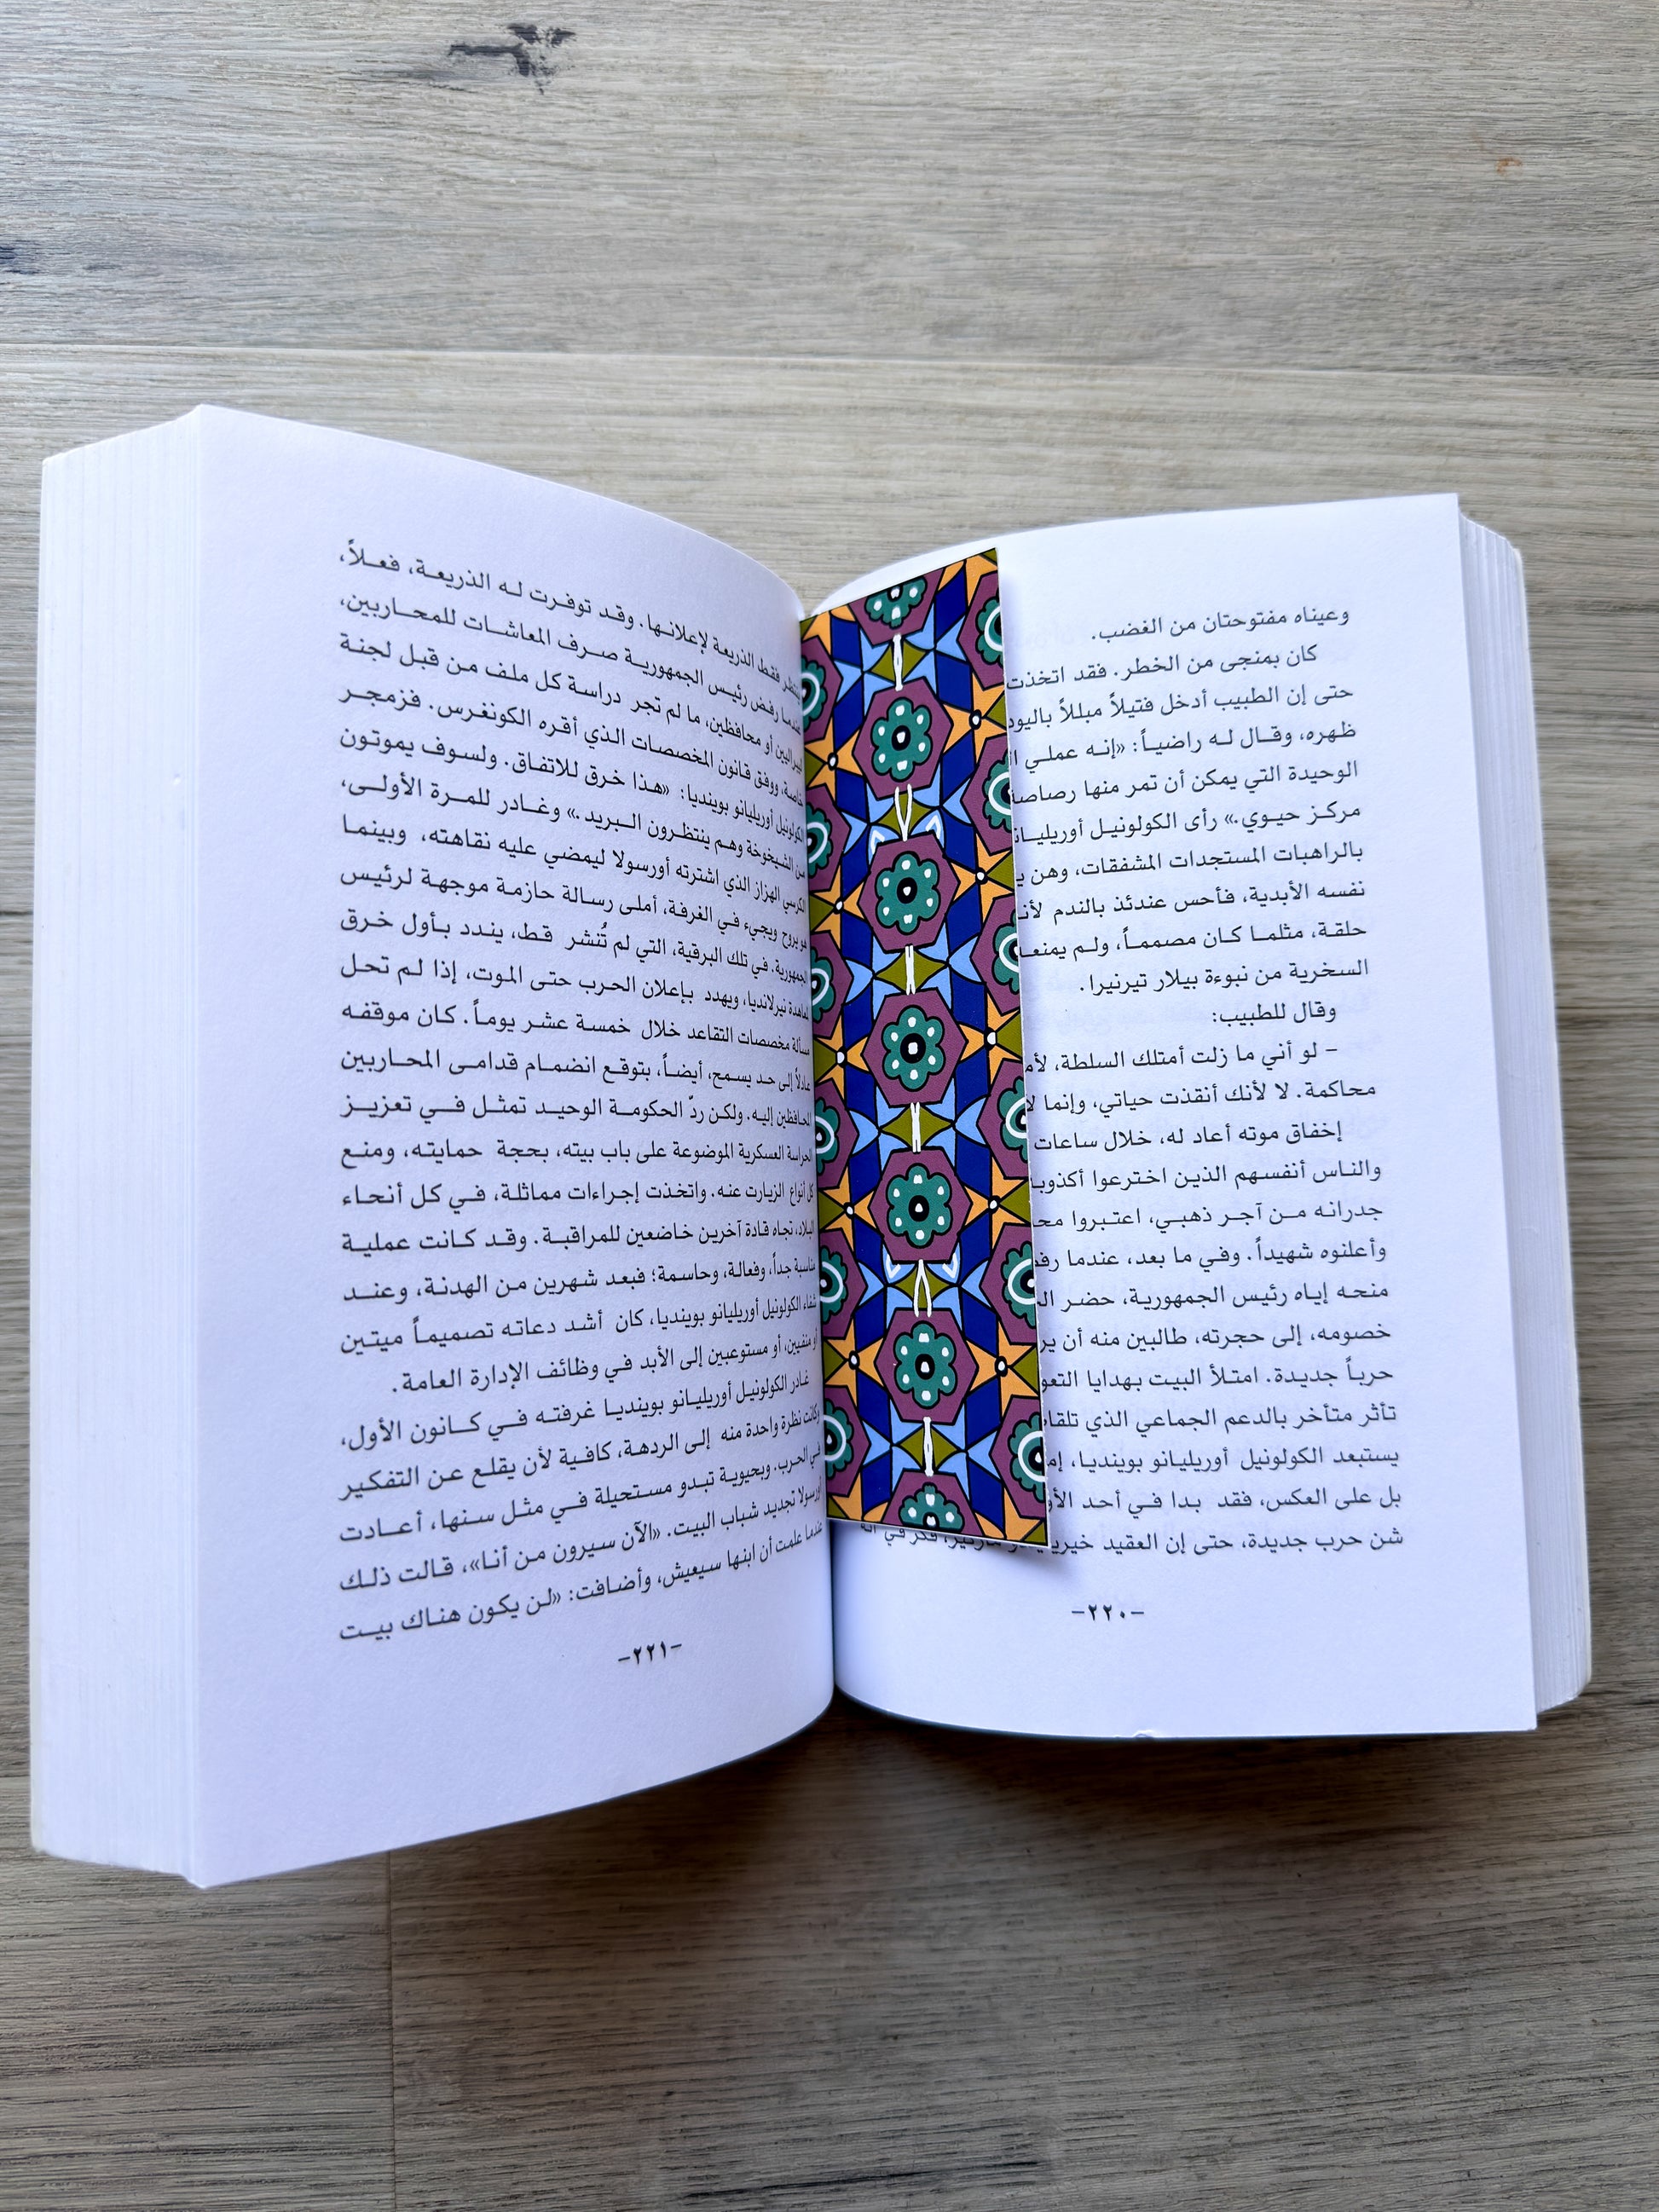 وعيناه مفتوحتان من الغضب.
كان بمنجى من الخطر. فقد اتخذت
حتى إن الطبيب أدخل فتيلاً مبللاً باليود
ظهره، وقال له راضياً: «إنه عملي
الوحيدة التي يمكن أن تمر منها رصاصة
مركز حيوي.» رأى الكولونيل أوريليانو
بالراهبات المستجدات المشفقات، وهن
نفسه الأبدية، فأحس عندئذ بالندم لأنه
حلقة، مثلما كان مصمماً، ولم يمنعه
السخرية من نبوءة بيلار تيرنيرا.
وقال للطبيب:
– لو أني ما زلت أمتلك السلطة،
محاكمة. لا لأنك أنقذت حياتي، وإنما
إخفاق موته أعاد له، خلال ساعات
والناس أنفسهم الذين اخترعوا أكذوبة
جدرانه من آجر ذهبي، اعتبروا
وأعلنوه شهيداً. وفي ما بعد، عندما رفض
منحه إياه رئيس الجمهورية، حضر
خصومه، إلى حجرته، طالبين منه أن
حرباً جديدة. امتلأ البيت بهدايا
تأثر متأخر بالدعم الجماعي الذي
يستبعد الكولونيل أوريليانو بوينديا،
بل على العكس، فقد بدا في أحد
شن حرب جديدة، حتى إن العقيد فكر في أنه
–٢٢٠–
ينتظر فقط الذريعة لإعلانها. وقد توفرت له الذريعة، فعلاً،
عندما رفض رئيس الجمهورية صرف المعاشات للمحاربين،
ليبراليين أو محافظين، ما لم تجر دراسة كل ملف من قبل لجنة
خاصة، ووفق قانون المخصصات الذي أقره الكونغرس. فزمجر
الكولونيل أوريليانو بوينديا: «هذا خرق للاتفاق. ولسوف يموتون
من الشيخوخة وهم ينتظرون البريد.» وغادر للمرة الأولى،
الكرسي الهزاز الذي اشترته أورسولا ليمضي عليه نقاهته، وبينما
هو يروح ويجيء في الغرفة، أملى رسالة حازمة موجهة لرئيس
الجمهورية. في تلك البرقية، التي لم تُنشر قط، يندد بأول خرق
لمعاهدة نيرلانديا، ويهدد بإعلان الحرب حتى الموت، إذا لم تحل
مسألة مخصصات التقاعد خلال خمسة عشر يوماً. كان موقفه
عادلاً إلى حد يسمح، أيضاً، بتوقع انضمام قدامى المحاربين
المحافظين إليه. ولكن ردّ الحكومة الوحيد تمثل في تعزيز
الحراسة العسكرية الموضوعة على باب بيته، بحجة حمايته، ومنع
كل أنواع الزيارت عنه. واتخذت إجراءات مماثلة، في كل أنحاء
البلاد، تجاه قادة آخرين خاضعين للمراقبة. وقد كانت عملية
مناسبة جداً، وفعالة، وحاسمة؛ فبعد شهرين من الهدنة، وعند
شفاء الكولونيل أوريليانو بوينديا، كان أشد دعاته تصميماً ميتين
أو منفيين، أو مستوعبين إلى الأبد في وظائف الإدارة العامة.
غادر الكولونيل أوريليانو بوينديا غرفته في كانون الأول،
وكانت نظرة واحدة منه إلى الردهة، كافية لأن يقلع عن التفكير
في الحرب. وبحيوية تبدو مستحيلة في مثل سنها، أعادت
أورسولا تجديد شباب البيت. «الآن سيرون من أنا»، قالت ذلك
عندما علمت أن ابنها سيعيش، وأضافت: «لن يكون هناك بيت
–٢٢١–